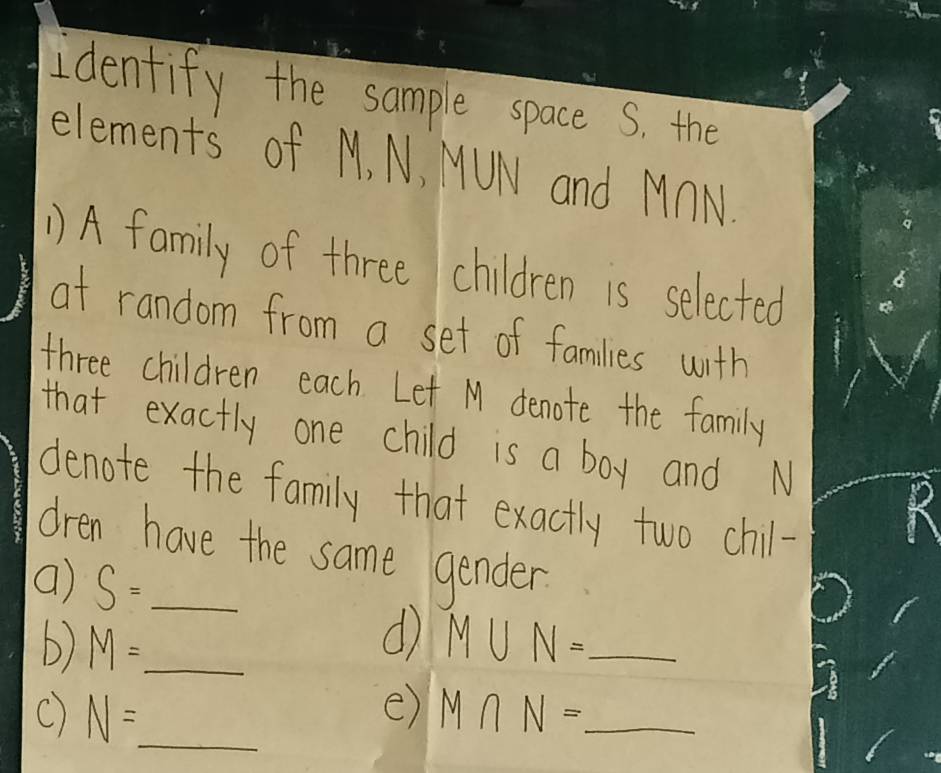 Identify the sample space S, the
elements of M, N, MUN and M∩N.
1) A family of three children is selected
at random from a set of families with
three children each. Let M denote the family
that exactly one child is a boy and N
denote the family that exactly two chil-
dren have the same gender.
a) S = ____
b) M = ____
c) N = ____
d) M U N = ____
e) M ∩ N = ____
R